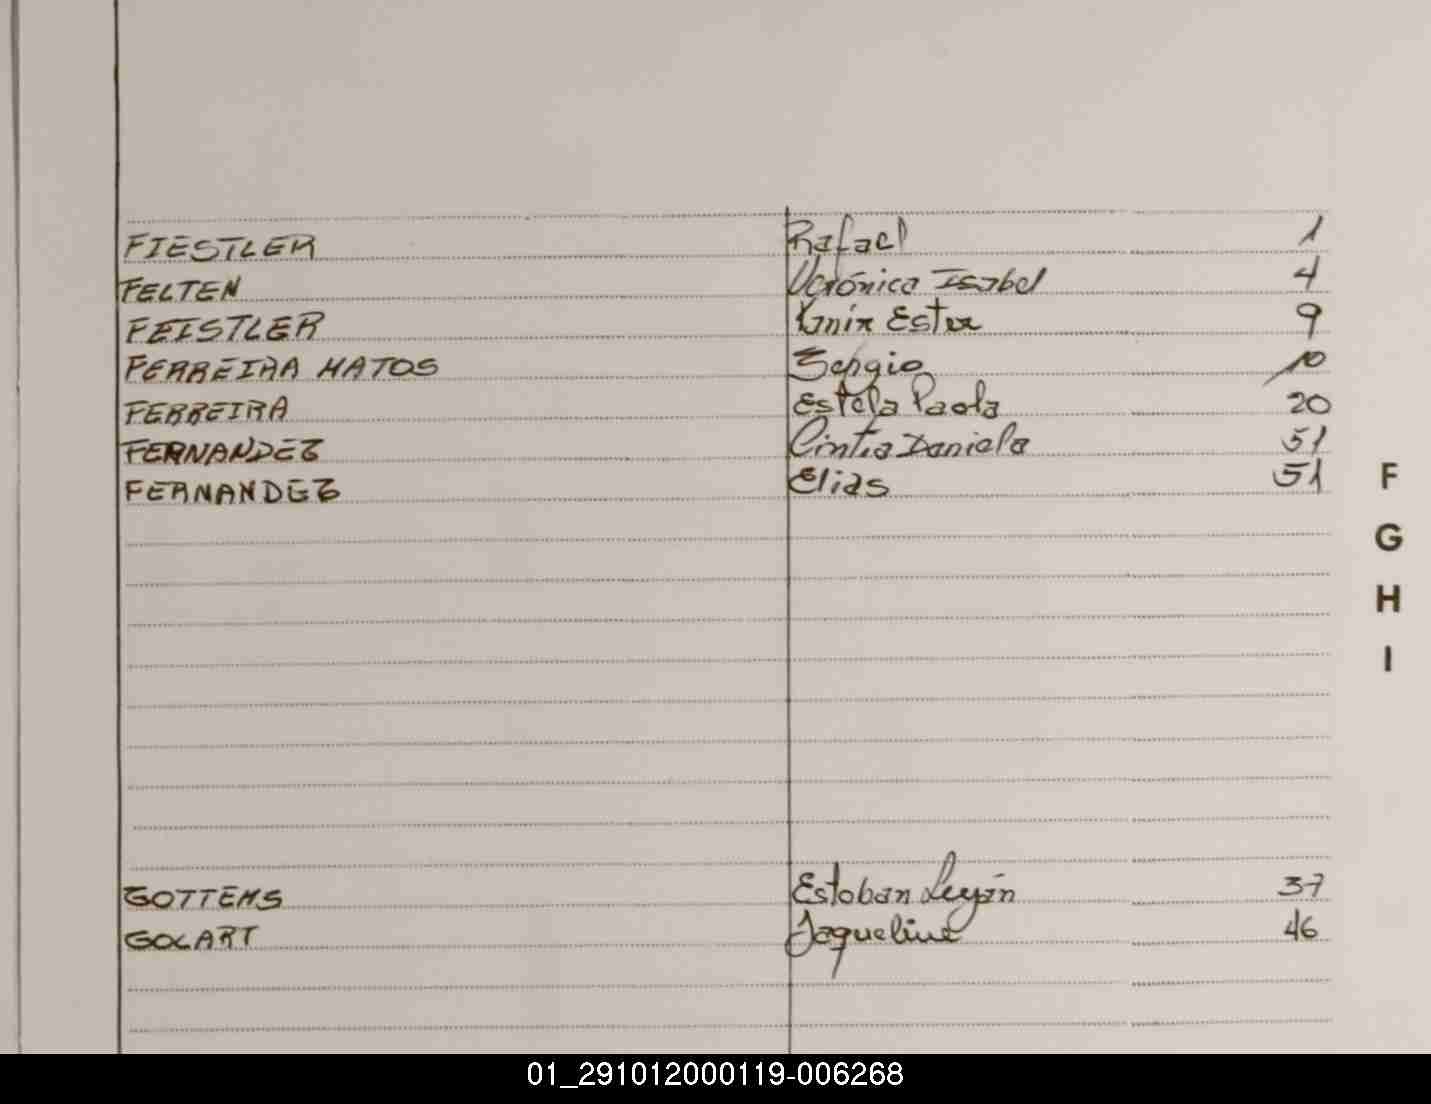 FIESTLER Rafael 1
FELTEN Verónica Isabel 4
FEISTLER Ester 9
FERREIRA MATOS Sergio 10
FERREIRA Estela Paola 20
FERNANDEZ Cintia Daniela 51
FERNANDEZ Elias 51
F
G
H
I
GOTTEMS Esteban 37
GOLART Jaqueline 46
01_291012000119-006268